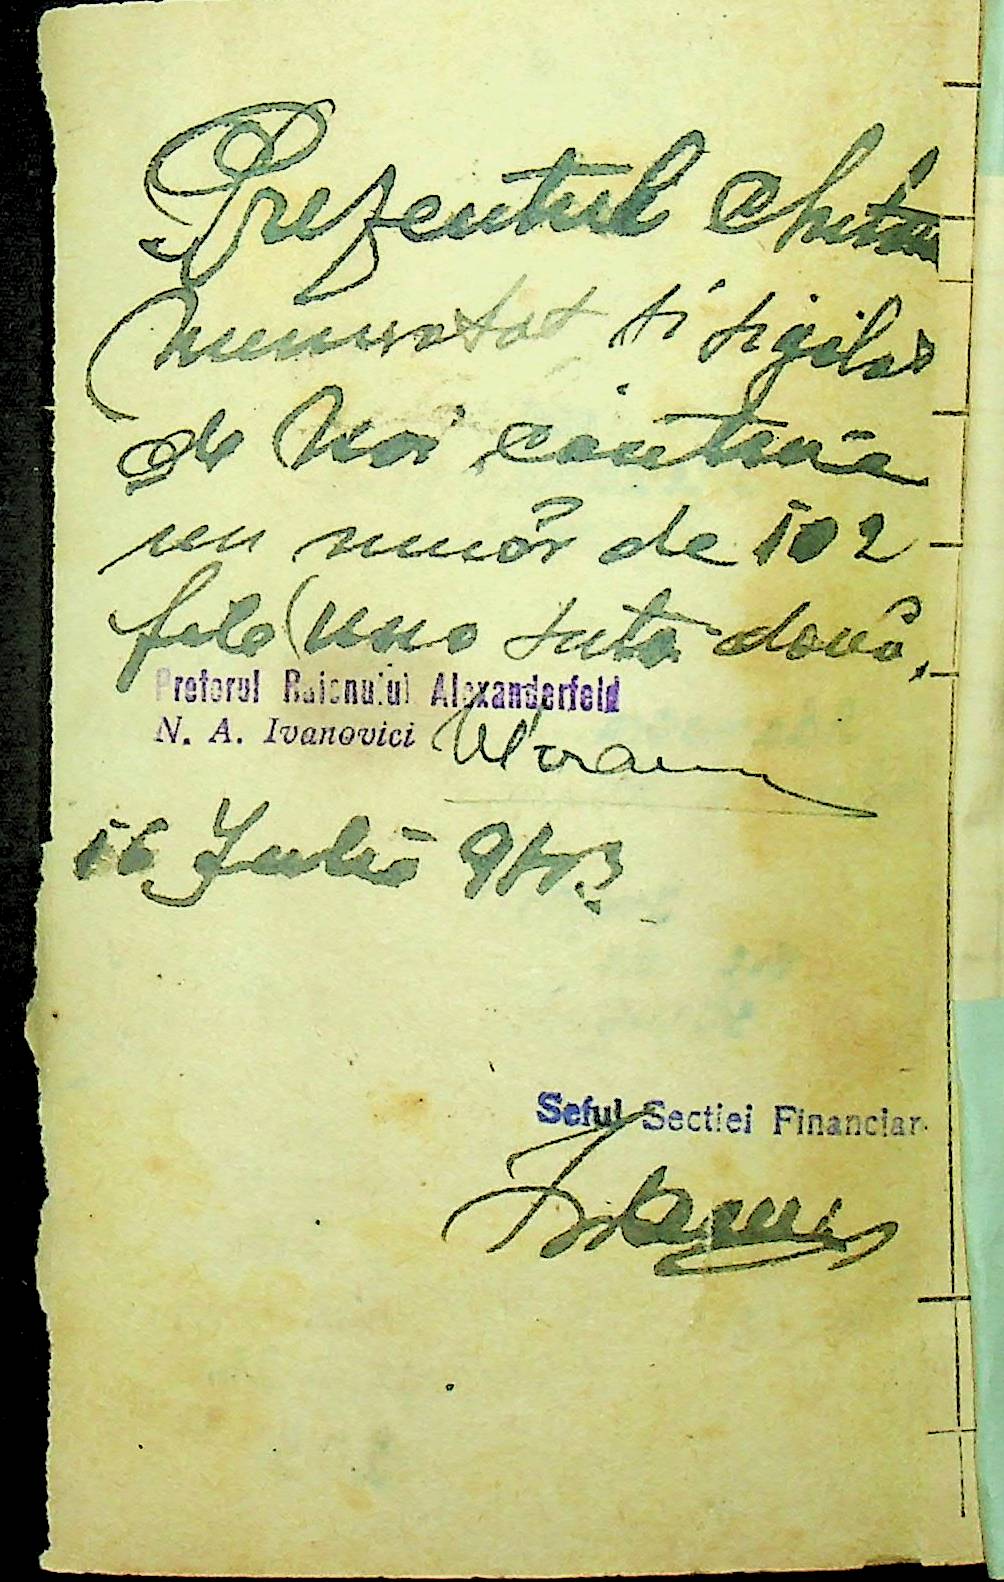 Prezentul
numerotat si sigilat
de Noi, contine
un numär de 102
file (una suta două,
Pretorul Raionului Alexanderfeld
N. A. Ivanovici
16 Julie 943
Seful Sectiei Financiar